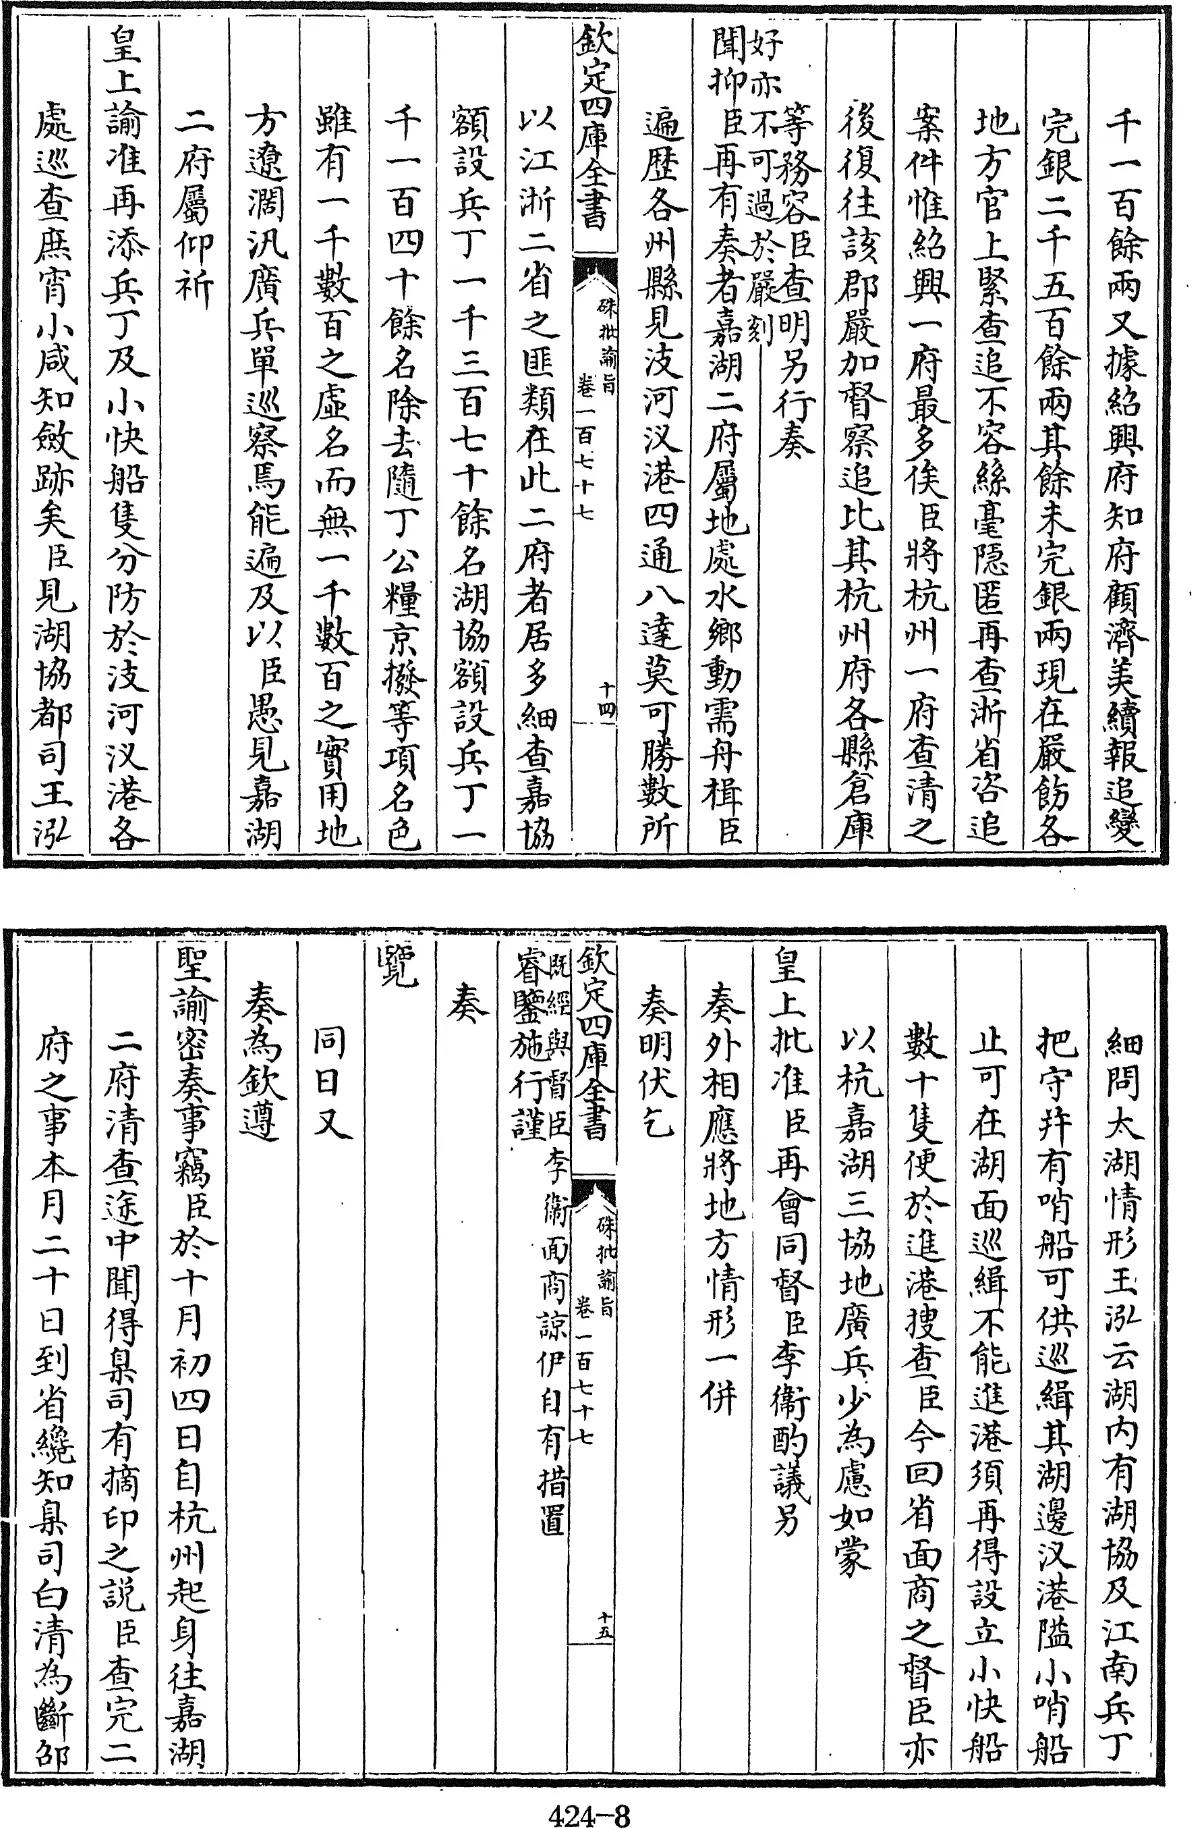 千一百餘兩又據紹興府知府顧濟美續報追變
完銀二千五百餘兩其餘未完銀兩現在嚴飭各
地方官上緊查追不容絲毫隱匿再查浙省咨追
案件惟紹興一府最多俟臣將杭州一府查清之
後復往該郡嚴加督察追比其杭州府各縣倉庫
等務容臣查明另行奏
好亦不可過於嚴刻
聞抑臣再有奏者嘉湖二府屬地處水鄉動需舟楫臣
遍歷各州縣見汥河汊港四通八達莫可勝數所
欽定四庫全書
硃批諭旨
卷一百七十七
十四
以江浙二省之匪類在此二府者居多細查嘉協
額設兵丁一千三百七十餘名湖協額設兵丁一
千一百四十餘名除去隨丁公糧京撥等項名色
雖有一千數百之虛名而無一千數百之實用地
方遼濶汛廣兵單巡察焉能遍及以臣愚見嘉湖
二府屬仰祈
皇上諭准再添兵丁及小快船隻分防於汥河汊港各
處巡查庶宵小咸知斂跡矣臣見湖協都司王泓
細問太湖情形王泓云湖内有湖協及江南兵丁
把守幷有哨船可供巡緝其湖邊汊港隘小哨船
止可在湖面巡緝不能進港須再得設立小快船
數十隻便於進港搜查臣今回省面商之督臣亦
以杭嘉湖三協地廣兵少為慮如蒙
皇上批准臣再會同督臣李衞酌議另
奏外相應將地方情形一併
奏明伏乞
欽定四庫全書
硃批諭旨
卷一百七十七
十五
睿鑒施行謹
既經與督臣李衞面商諒伊自有措置
奏
覽
同日又
奏為欽遵
聖諭密奏事竊臣於十月初四日自杭州起身往嘉湖
二府清查途中聞得臬司有摘印之說臣查完二
府之事本月二十日到省纔知臬司白清為斷邵
424-8